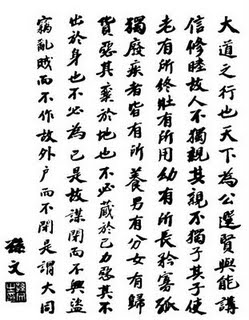 大道之行也天下為公選賢與能講
信修睦故人不獨親其親不獨子其子使
老有所終壯有所用幼有所長矜寡孤
獨廢疾者皆有所養男有分女有歸
貨惡其棄於地也不必藏於己力惡其不
出於身也不必為己是故謀閉而不興盜
竊亂賊而不作故外戶而不閉是謂大同
孫文